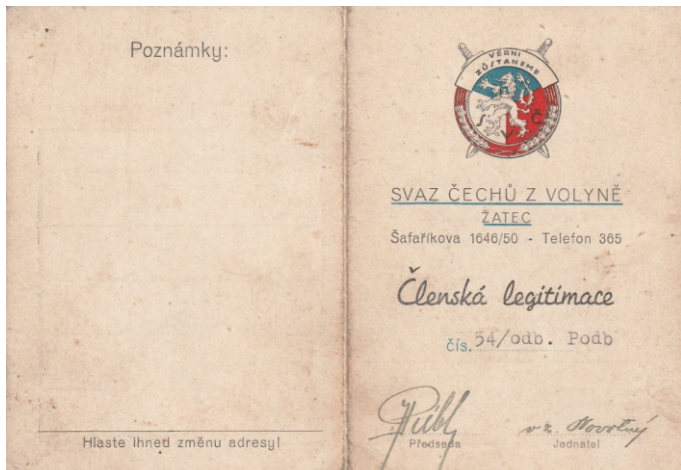 Poznámky:
Hlaste ihned změnu adresy!
VĚRNI
ZŮSTANEME
S Č
V
SVAZ ČECHŮ Z VOLYNĚ
ŽATEC
Šafaříkova 1646/50 - Telefon 365
Členská legitimace
čís. 54/odb. Podb
v z. Novotný
Předseda Jednatel